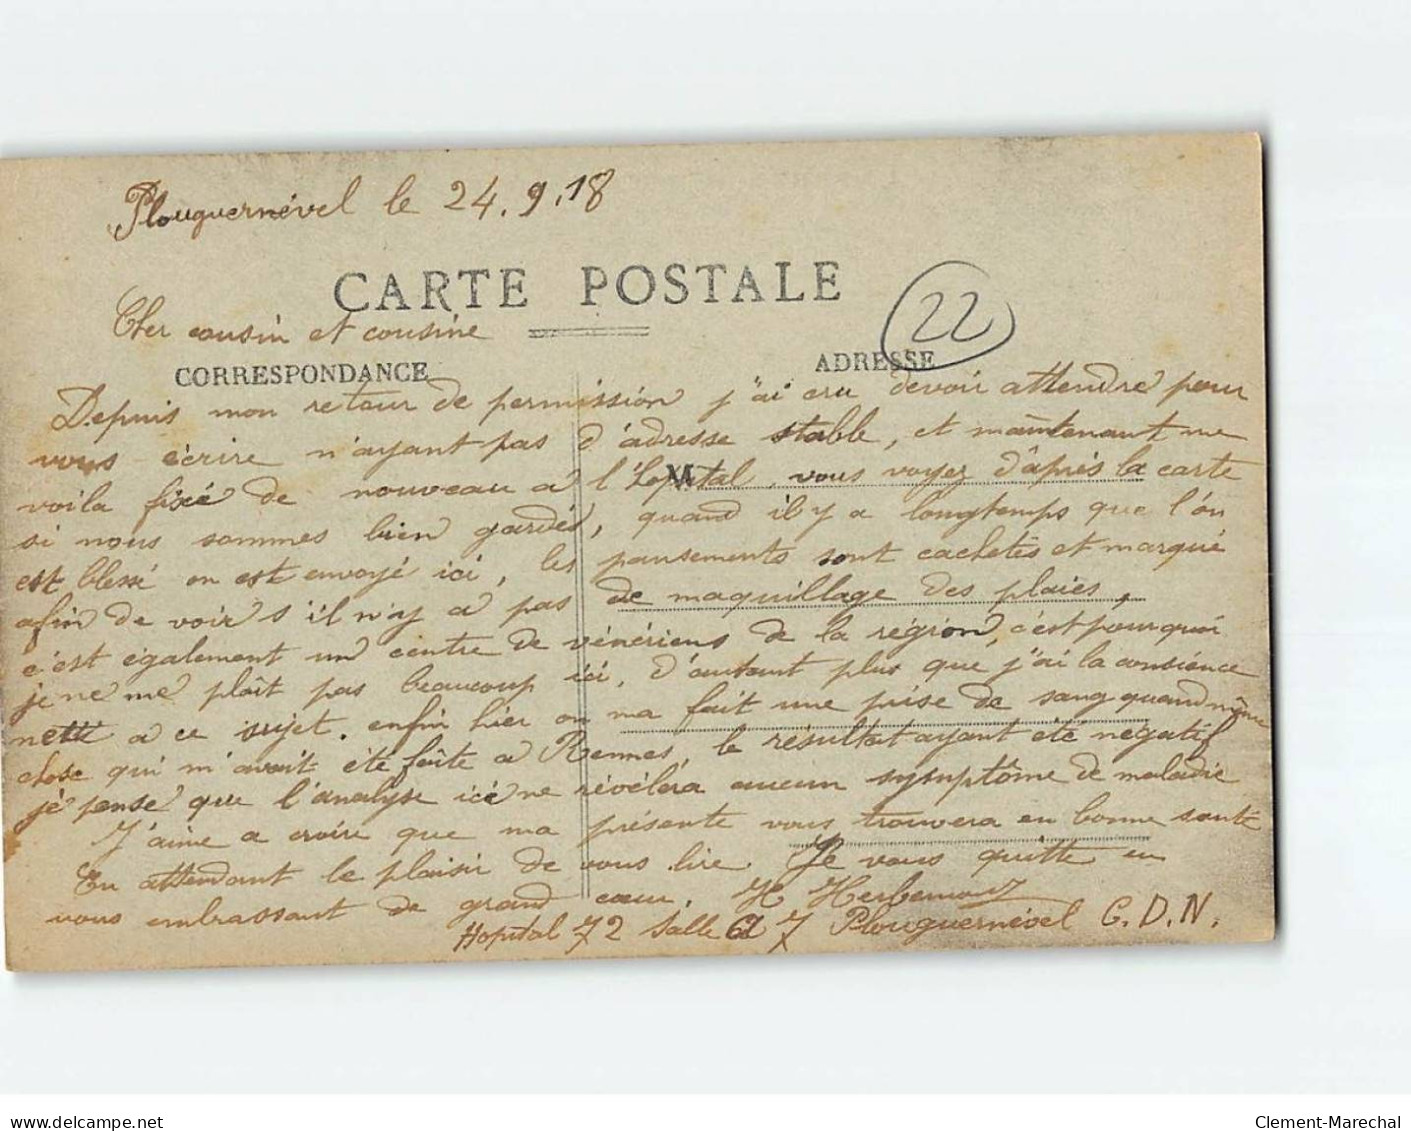 Plouguernével le 24.9.18
CARTE POSTALE
22
Cher cousin et cousine
CORRESPONDANCE
ADRESSE
Depuis mon retour de permission j'ai cru devoir attendre pour
vous écrire n'ayant pas d'adresse stable, et maintenant me
voila fixé de nouveau a l'hopital, vous voyez d'après la carte
M
si nous sommes bien gardés, quand il y a longtemps que l'on
est blessé on est envoyé ici, les pansements sont cachetés et marqué
afin de voir s'il n'y a pas de maquillage des plaies,
c'est également un centre de vénériens de la région, c'est pourquoi
je ne me plait pas beaucoup ici, d'autant plus que j'ai la consience
nette a ce sujet. enfin hier on ma fait une prise de sang quand même
chose qui m'avait été faite a Rennes, le résultat ayant été négatif
je pense que l'analyse ici ne révélera aucun symptôme de maladie
J'aime a croire que ma présente vous trouvera en bonne santé
En attendant le plaisir de vous lire. Je vous quitte en
vous embrassant de grand cœur. H
Hopital 72 Salle 7 Plouguernével C.D.N.
www.delcampe.net
Clement-Marechal